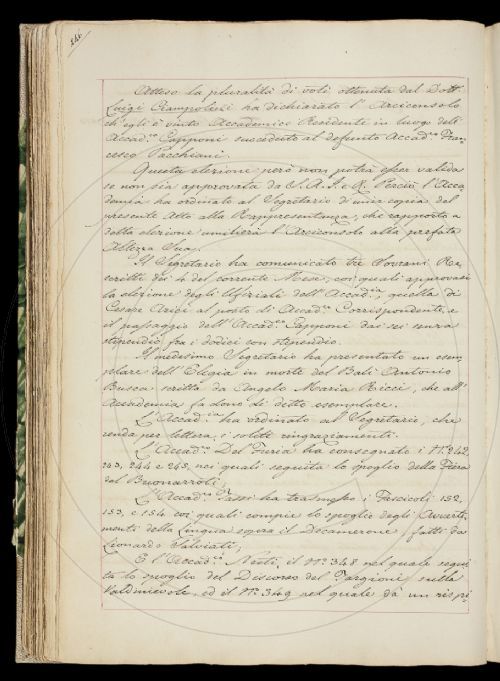 Atteso la pluralità di voti ottenuta dal Dott.
Luigi Ciampolini ha dichiarato l'Arciconsolo
ch'egli è vinto Accademico Residente in luogo dell'
Accad.co Capponi succeduto al defunto Accad.co Fran-
cesco Pacchiani.
Questa elezione però non potrà esser valida
se non sia approvata da S.A.I. e R. Perciò l'Acca
demia ha ordinato al Segretario di unir copia del
presente Atto alla Rappresentanza, che rapporto a
detta elezione umilierà l'Arciconsolo alla prefata
Altezza Sua.
Il Segretario ha comunicato tre Sovrani Re
scritti dei 4 del corrente Mese, coi quali approvasi
la elezione degli Ufiziali dell'Accad.ia, quella di
Cesare Arici al posto di Accad.co Corrispondente, e
il passaggio dell'Accad.co Capponi dai sei senza
stipendio fra i dodici con stipendio.
Il medesimo Segretario ha presentato un esem
plare dell'Elegia in morte del Bali Antonio
Busca scritta da Angelo Maria Ricci, che all'
Accademia fa dono di detto esemplare.
L'Accad.ia ha ordinato al Segretario, che
renda per lettera i soliti ringraziamenti.
L'Accad.co Del Furia ha consegnato i N.i 242,
243, 244 e 245, nei quali seguita lo spoglio della Fiera
del Buonarroti;
L'Accad.co Sassi ha trasmesso i Fascicoli 152,
153, e 154 coi quali compie lo spoglio degli Avverti-
menti della Lingua sopra il Decamerone fatti da
Lionardo Salviati;
E l'Accad.co Nesti, il N.o 348 nel quale segui
ta lo spoglio del Discorso del Targioni sulla
Valdinievole, ed il N.o 349 nel quale dà un rispi